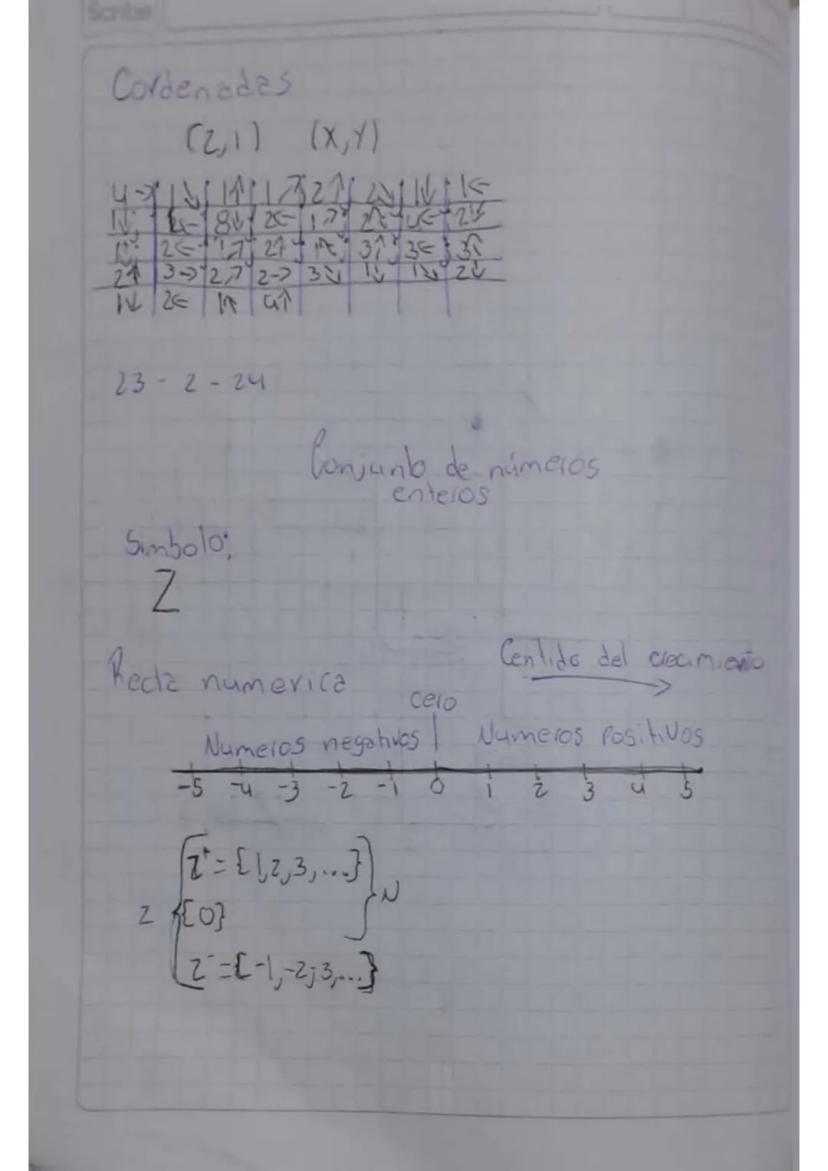 Scribe
Cordenadas
(2,1) (X,Y)
4→ 1↘ 1↑ 1↗ 2↑ 2↘ 1↓ 1←
8↓ 2← 1↗ 2↓
2← 1↗ 2↑ 3↑ 3← 3↑
2↑ 3→ 2↗ 2→ 3↘ 1↓ 1↘ 2↓
1↓ 2← 1↑ 4↑
23 - 2 - 24
Conjunto de números
enteros
Simbolo:
Z
Centido del crecimiento
Recta numerica
cero
Numeros negativos Numeros Positivos
-5 -4 -3 -2 -1 0 1 2 3 4 5
Z⁺ = {1,2,3,...}
Z {0} N
Z⁻ = {-1,-2,-3,...}